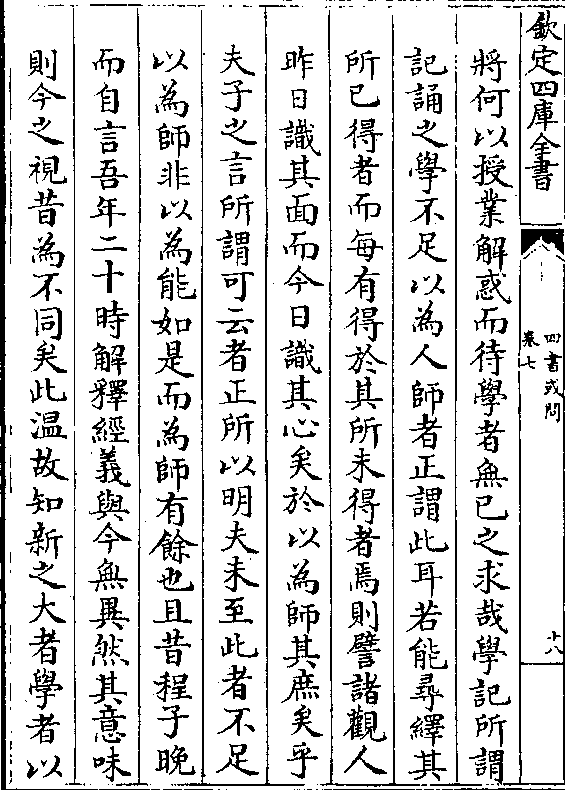 欽定四庫全書
四書或問
卷七
十八
將何以授業解惑而待學者無已之求哉學記所謂
記誦之學不足以為人師者正謂此耳若能尋繹其
所已得者而每有得於其所未得者焉則譬諸觀人
昨日識其面而今日識其心矣於以為師其庶矣乎
夫子之言所謂可云者正所以明夫未至此者不足
以為師非以為能如是而為師有餘也且昔程子晚
而自言吾年二十時解釋經義與今無異然其意味
則今之視昔為不同矣此温故知新之大者學者以